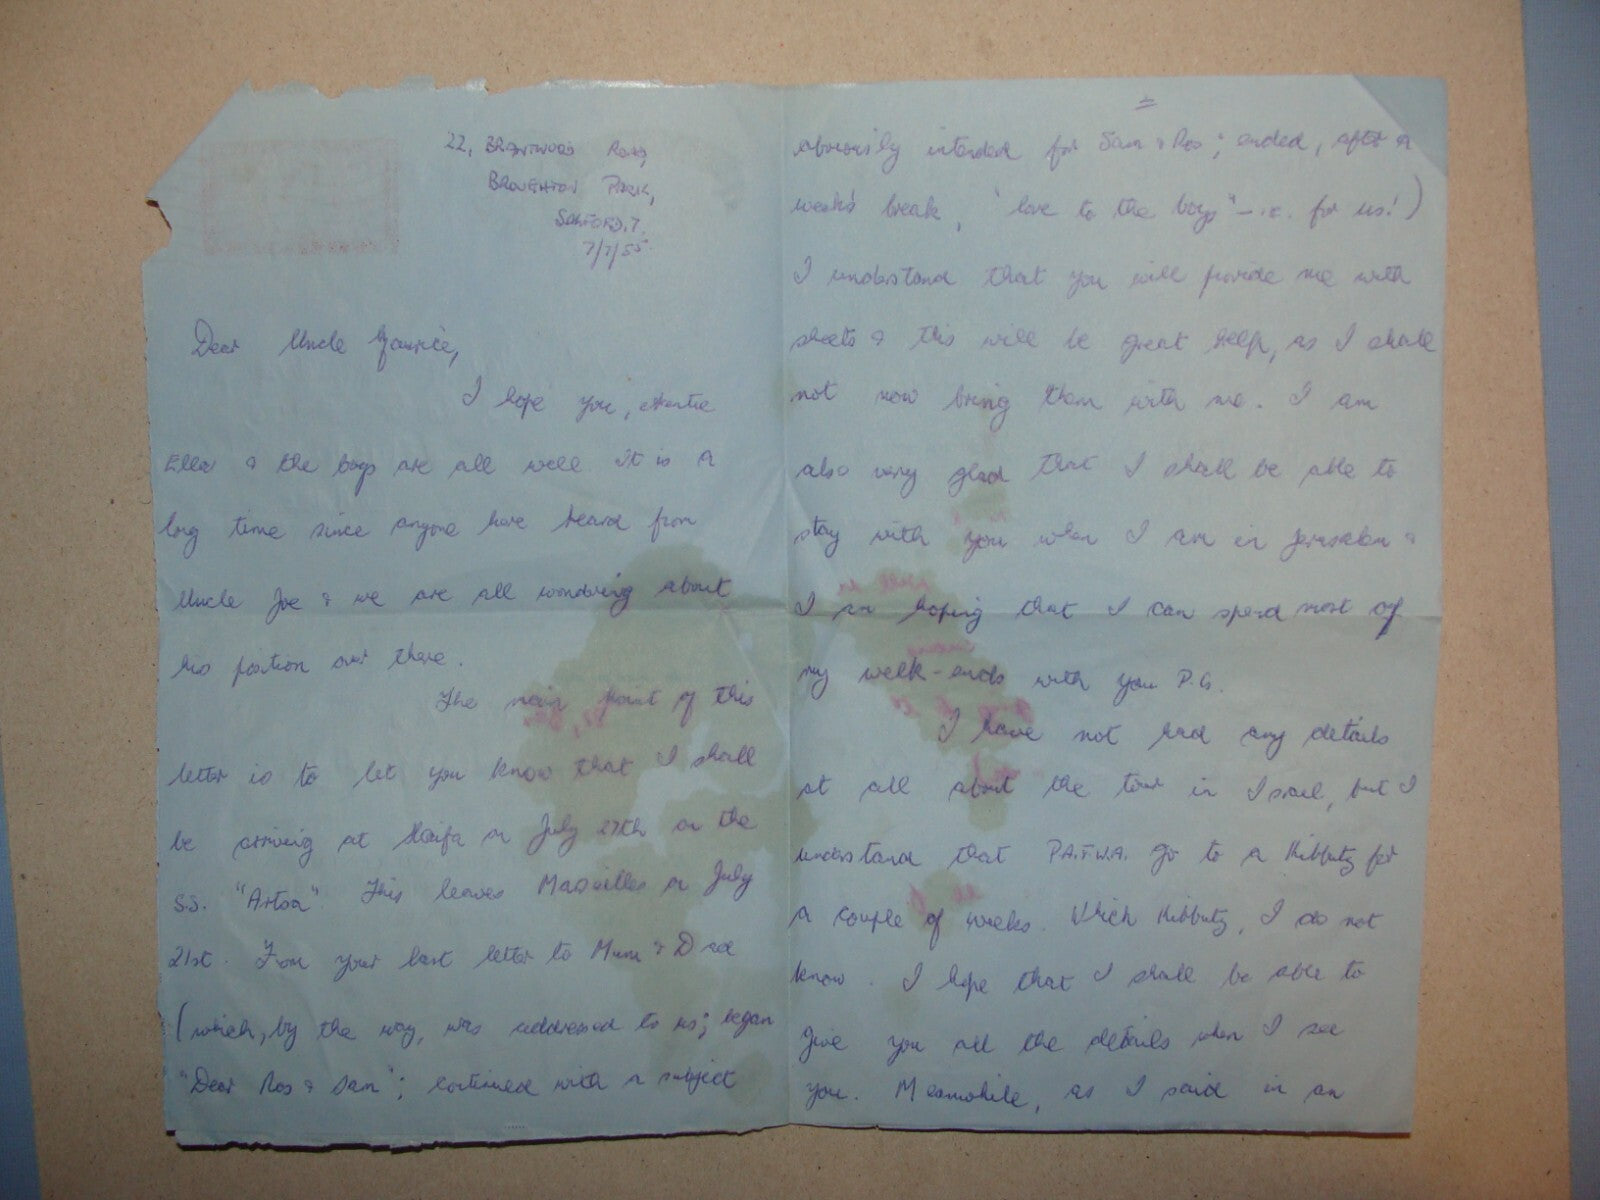 22, Brantwood Road,
Broughton Park,
Salford, 7.
7/7/55.
Dear Uncle Maurice,
I hope you, Auntie
Ella & the boys are all well. It is a
long time since anyone have heard from
Uncle Joe & we are all wondering about
his position over there.
The main point of this
letter is to let you know that I shall
be arriving at Haifa on July 27th on the
S.S. "Artsa". This leaves Marseilles on July
21st. From your last letter to Mum & Dad
(which, by the way, was addressed to us; began
"Dear Ros & Sam"; continued with a subject
=
obviously intended for Sam & Ros; ended, after a
week's break, "love to the boys" – i.e. for us!)
I understand that you will provide me with
sheets & this will be great help, as I shall
not now bring them with me. I am
also very glad that I shall be able to
stay with you when I am in Jerusalem &
I am hoping that I can spend most of
my week-ends with you P.G.
I have not had any details
at all about the tour in Israel, but I
understand that P.A.T.W.A. go to a Kibbutz for
a couple of weeks. Which Kibbutz, I do not
know. I hope that I shall be able to
give you all the details when I see
you. Meanwhile, as I said in an